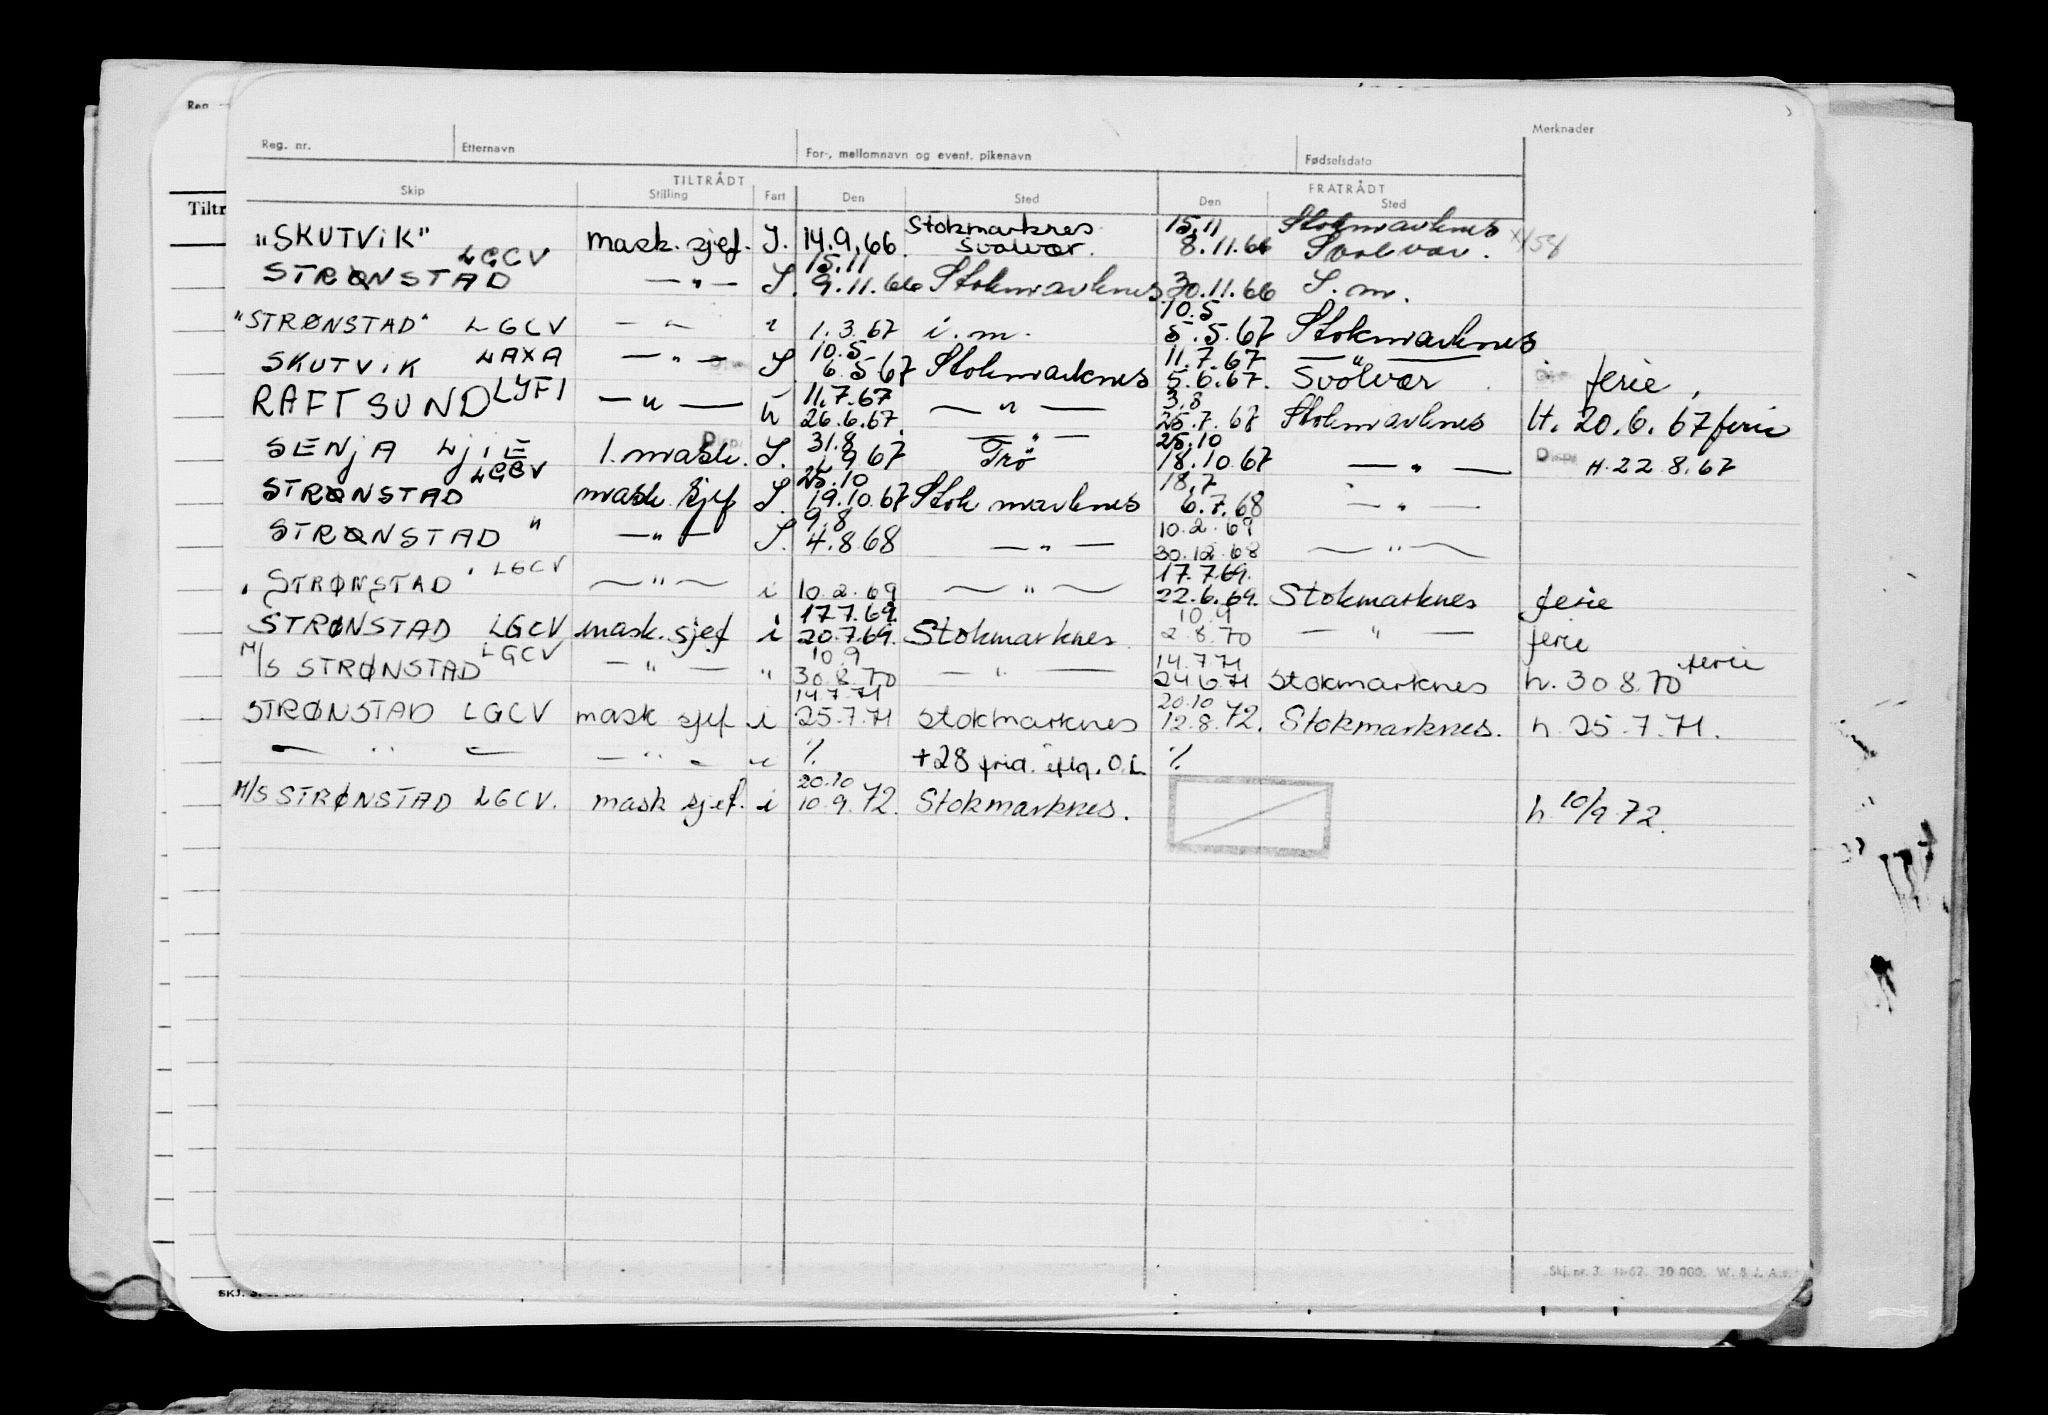 Reg.
Tiltr
Reg. nr. Etternavn For-, mellomnavn og event. pikenavn Fødselsdato Merknader
TILTRÅDT FRATRÅDT
Skip Stilling Fart Den Sted Den Sted
Stokmarknes 15.11 Stokmarknes
"SKUTVIK" mask. sjef. I. 14.9.66 Svolvær. 8.11.66 Svolvær.
LGCV 15.11
STRØNSTAD — " — I. 9.11.66 Stokmarknes 30.11.66 I. m.
10.5
"STRØNSTAD" LGCV — " — " 1.3.67 i. m. 5.5.67 Stokmarknes
10.5 11.7.67 — " —
SKUTVIK LAXA — " — I 6.5.67 Stokmarknes 5.6.67. Svolvær ferie,
11.7.67 3.8
RAFTSUND LYFI — " — " 26.6.67. — " — 25.7.67 Stokmarknes H. 20.6.67 ferie
31.8 — " — 25.10
SENJA LJIE 1. mask. I. 1.9.67 Trø 18.10.67 — " — H. 22.8.67
LGCV 25.10 18.7
STRØNSTAD mask sjef I. 19.10.67 Stokmarknes 6.7.68 — " —
9.8 10.2.69
STRØNSTAD " — " — I. 4.8.68 — " — 30.12.68 — " —
17.7.69.
"STRØNSTAD" LGCV — " — i 10.2.69 — " — 22.6.69. Stokmarknes ferie
17.7.69. 10.9
STRØNSTAD LGCV mask. sjef i 20.7.69. Stokmarknes. 2.8.70 — " — ferie
10.9 14.7.71 ferie
M/S STRØNSTAD LGCV — " — " 30.8.70 — " — 24.6.71 Stokmarknes h. 30.8.70
14.7.71 20.10
STRØNSTAD LGCV mask sjef i 25.7.71 Stokmarknes 12.8.72. Stokmarknes. h. 25.7.71.
— " — — " — " % +28 frid. iflg. O.L. %
20.10
M/S STRØNSTAD LGCV. mask sjef. i 10.9.72. Stokmarknes. h. 10/9.72.
Skj. nr. 3. 11-62. 20 000. W. & J. A.s.
SKJ.